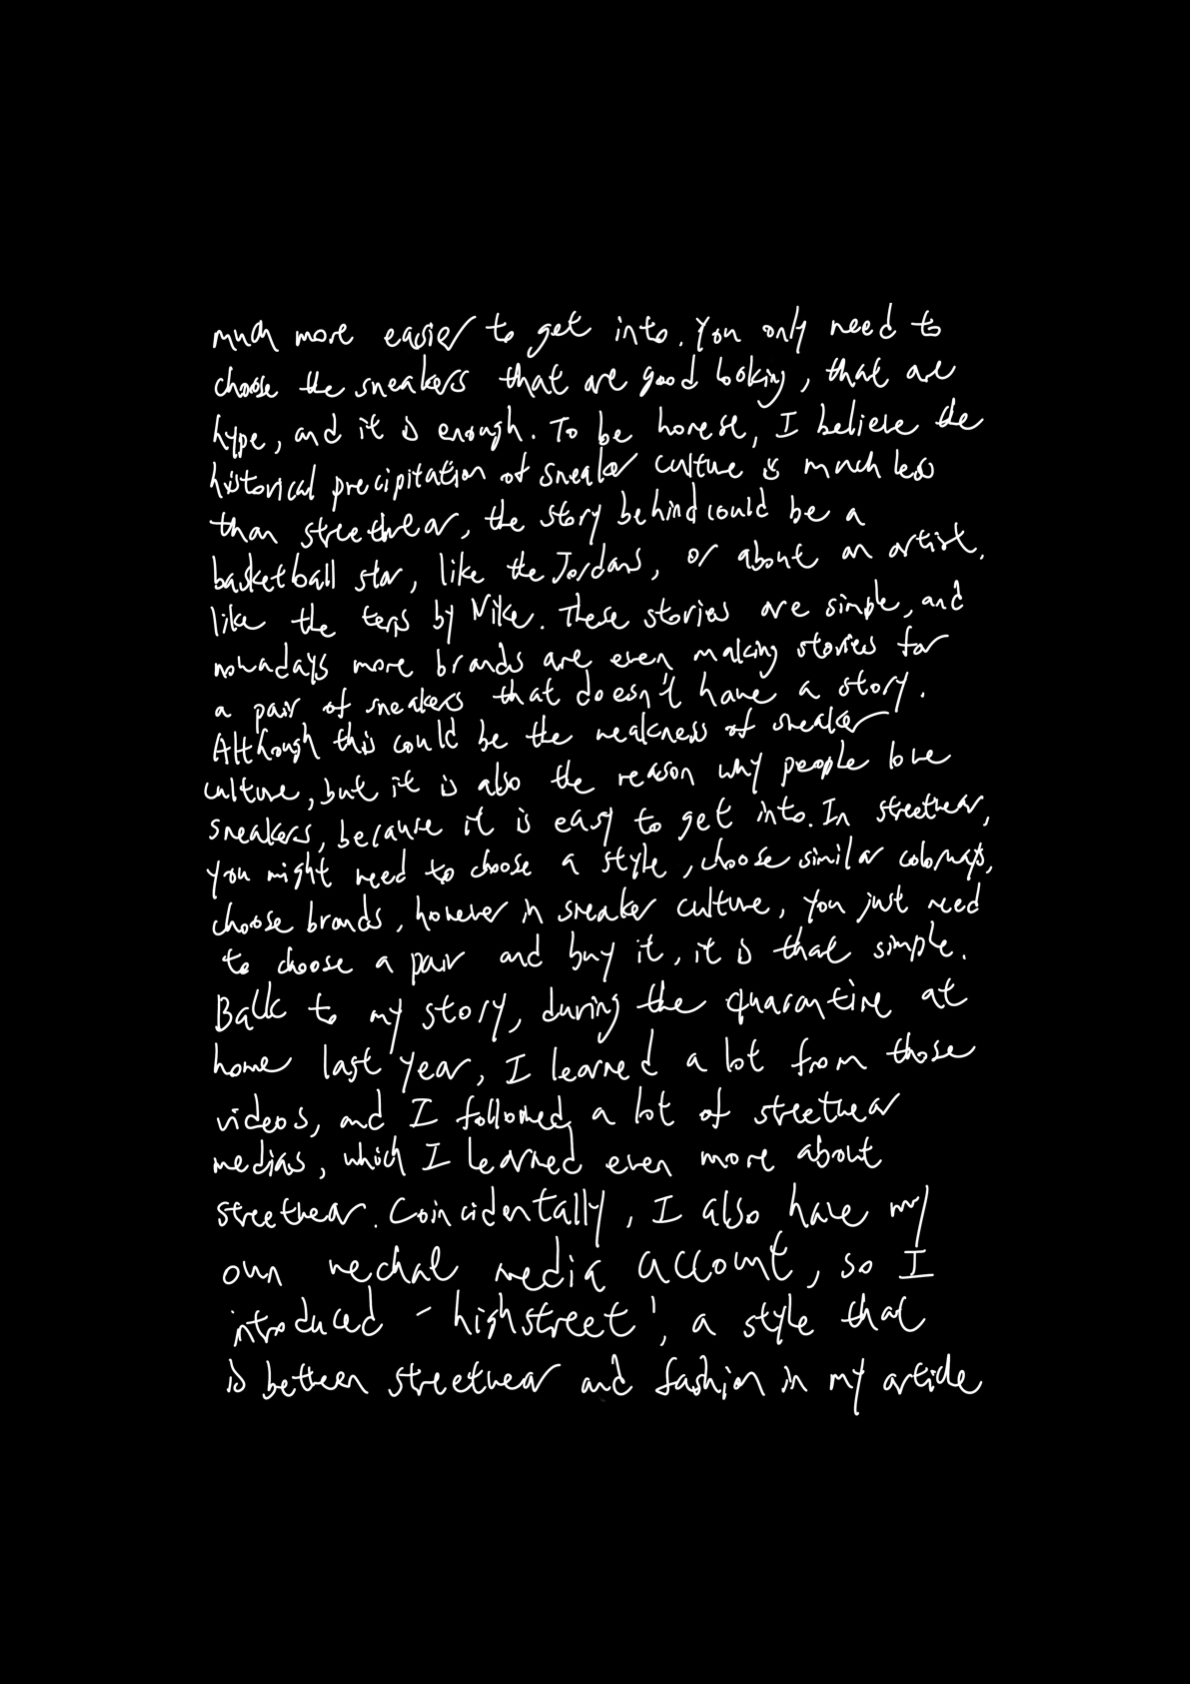 much more easier to get into. You only need to
choose the sneakers that are good looking, that are
hype, and it is enough. To be honest, I believe the
historical precipitation of sneaker culture is much less
than streetwear, the story behind could be a
basketball star, like the Jordans, or about an artist,
like the by Nike. These stories are simple, and
nowadays more brands are even making stories for
a pair of sneakers that doesn't have a story.
Although this could be the weakness of sneaker
culture, but it is also the reason why people love
sneakers, because it is easy to get into. In streetwear,
you might need to choose a style, choose similar colorways,
choose brands, however in sneaker culture, you just need
to choose a pair and buy it, it is that simple.
Back to my story, during the quarantine at
home last year, I learned a lot from those
videos, and I followed a lot of streetwear
medias, which I learned even more about
streetwear. Coincidentally, I also have my
own wechat media account, so I
introduced 'highstreet', a style that
is between streetwear and fashion in my article